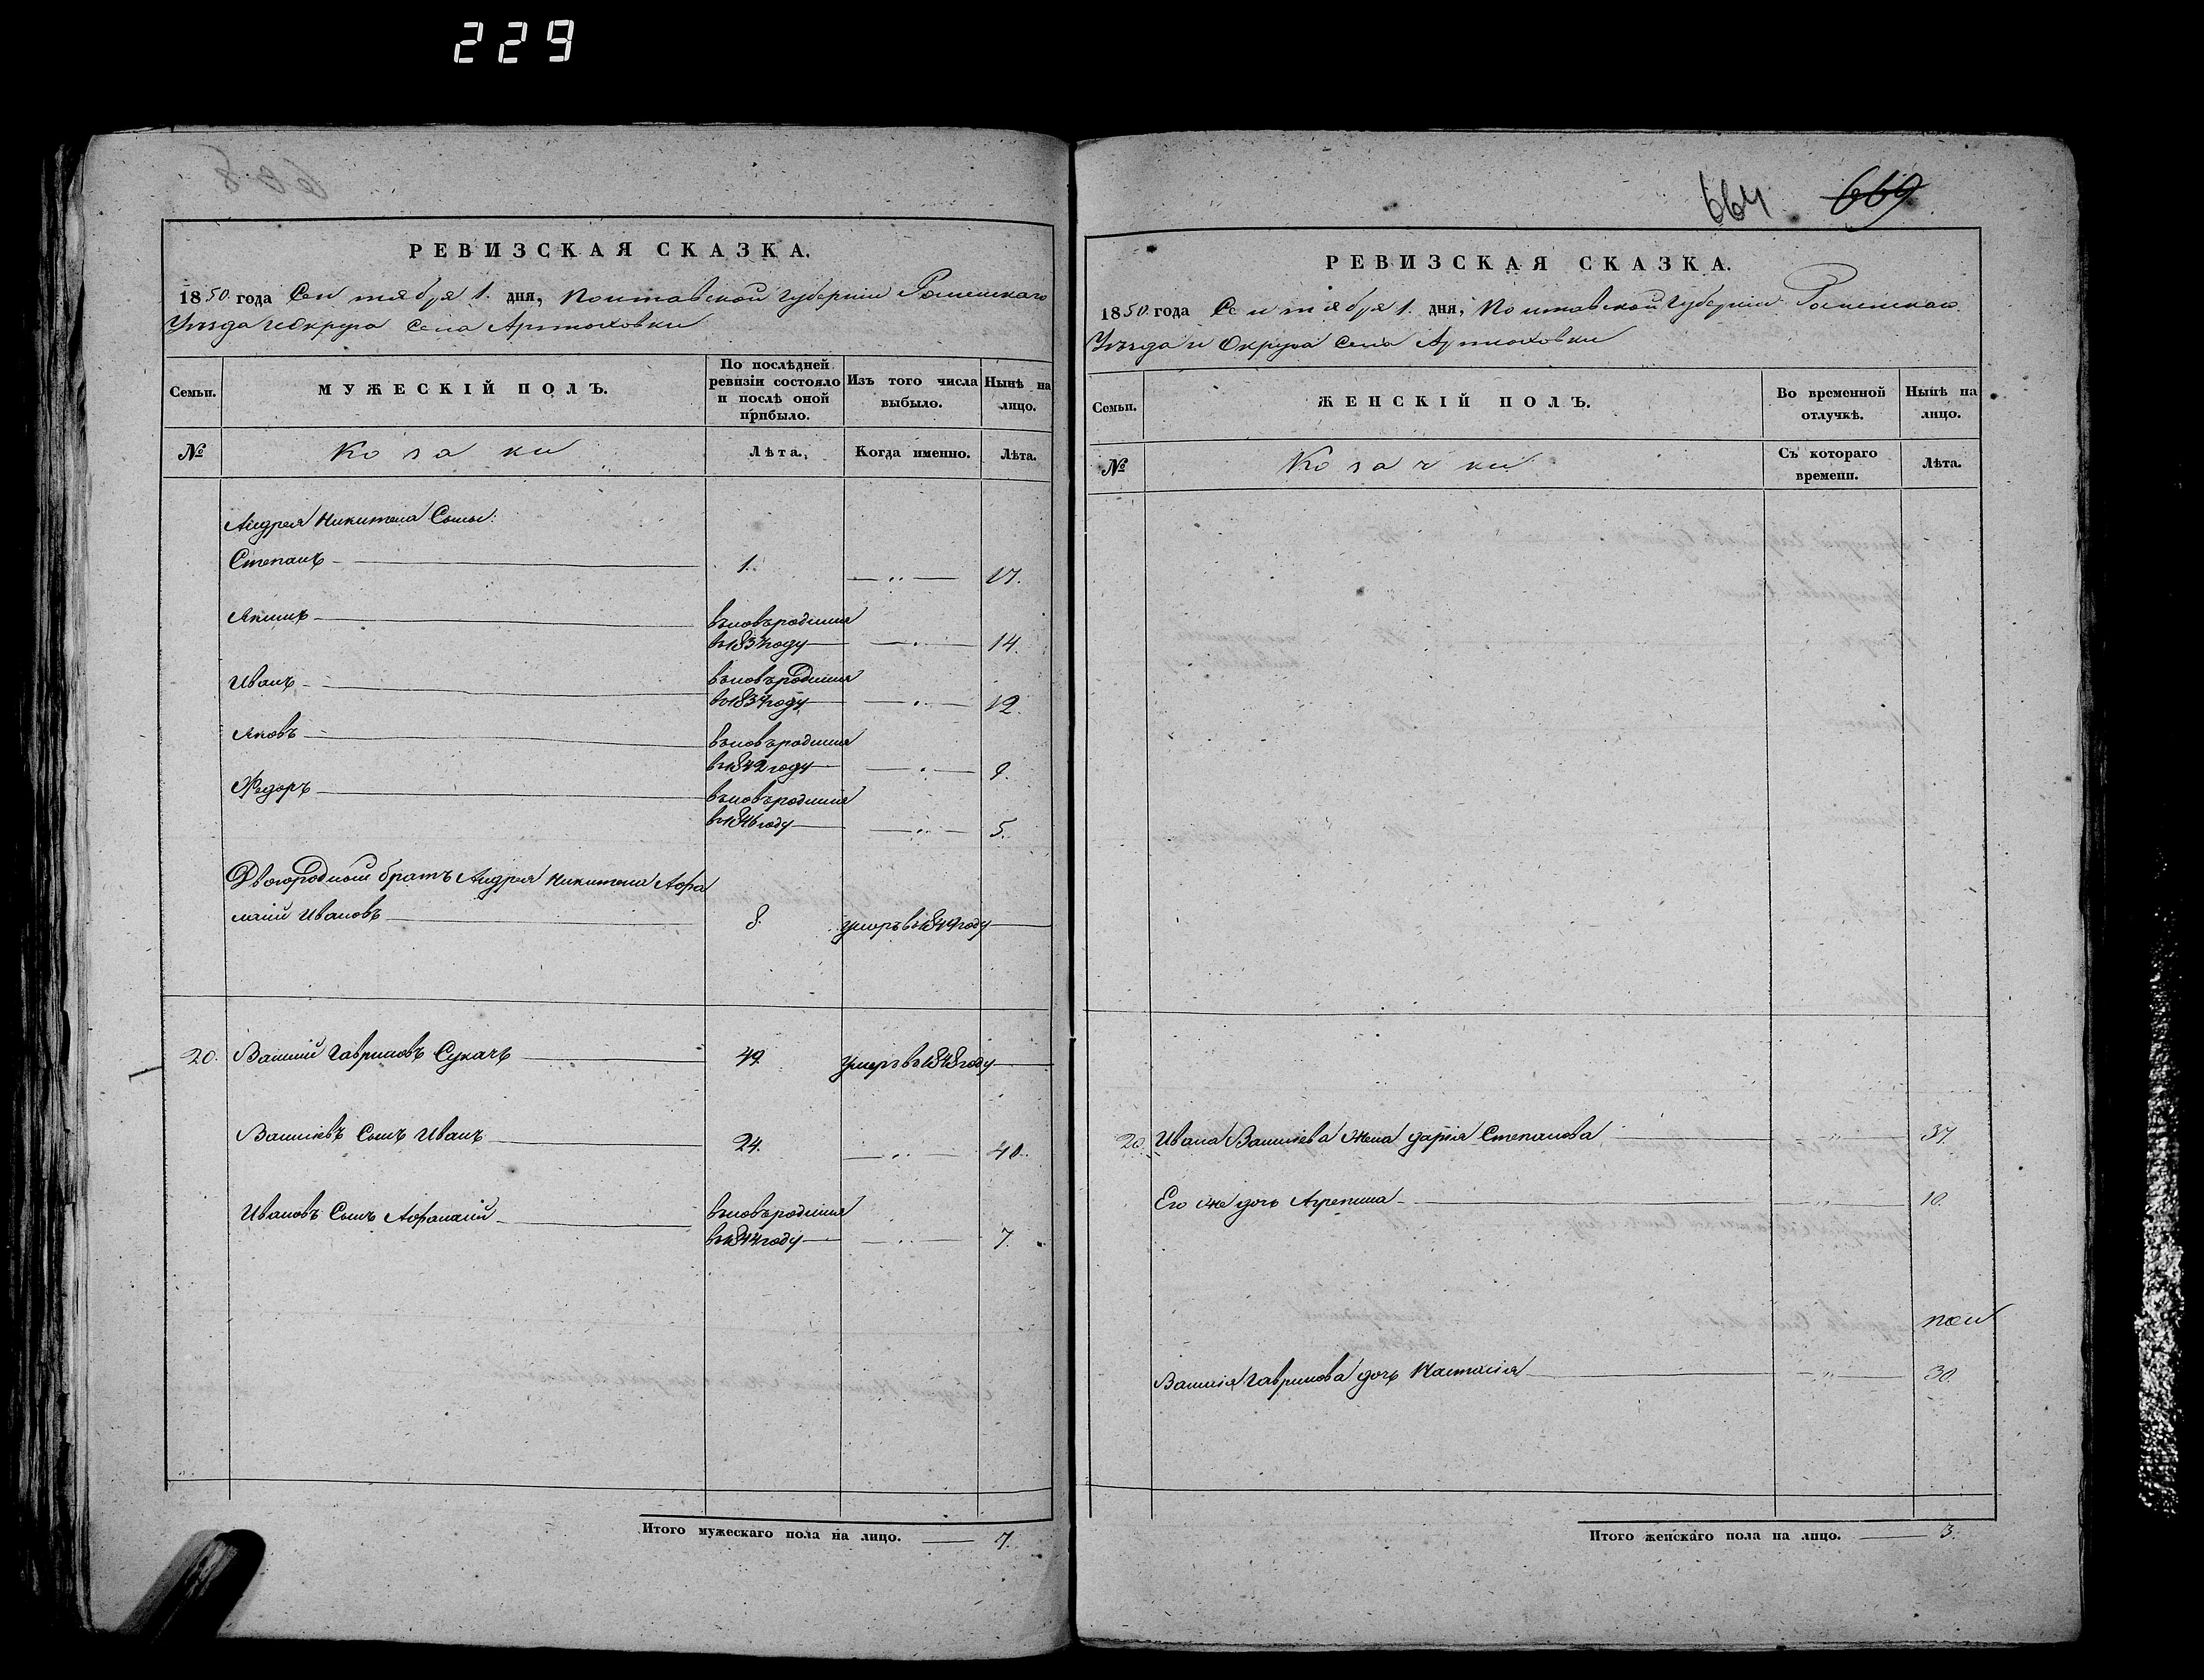 229
664 669
РЕВИЗСКАЯ СКАЗКА.
1850 года Сентября 1. дня, Полтавской губерніи Роменскаго
Уѣзда и Округа Села Артюховки
Семьи.
МУЖЕСКІЙ ПОЛЪ.
По послѣдней ревизіи состояло и послѣ оной прибыло.
Изъ того числа выбыло.
Нынѣ на лицо.
№
Козаки
Лѣта.
Когда именно.
Лѣта.
Андрея Никитена Сыны:
Степанъ 1. 17.
Якимъ вновьродился
14.
Иванъ вновьродился
12.
Яковъ вновьродился
въ 1842 году 9.
Ѳедоръ вновьродился
въ 1846 году 5.
Двоюродный братъ Андрея Никитена Афа
насій Ивановъ 8. умеръ въ 1849 году
20. Василій Гавриловъ Сукачъ 49. умеръ въ 1848 году
Васильевъ Сынъ Иванъ 24. 40.
Ивановъ Сынъ Афанасій вновьродился
въ 1844 году 7.
Итого мужескаго пола на лицо. 7.
РЕВИЗСКАЯ СКАЗКА.
1850 года Сентября 1. дня, Полтавской Губерніи Роменскаго
Уѣзда и Округа Села Артюховки
Семьи.
ЖЕНСКІЙ ПОЛЪ.
Во временной отлучкѣ.
Нынѣ на лицо.
№
Козачки
Съ котораго времени.
Лѣта.
20. Ивана Васильева Жена Дарія Степанова 37.
Его же дочь Агрепина 10.
Василія Гаврилова дочь Настасія 30.
Итого женскаго пола на лицо. 3.